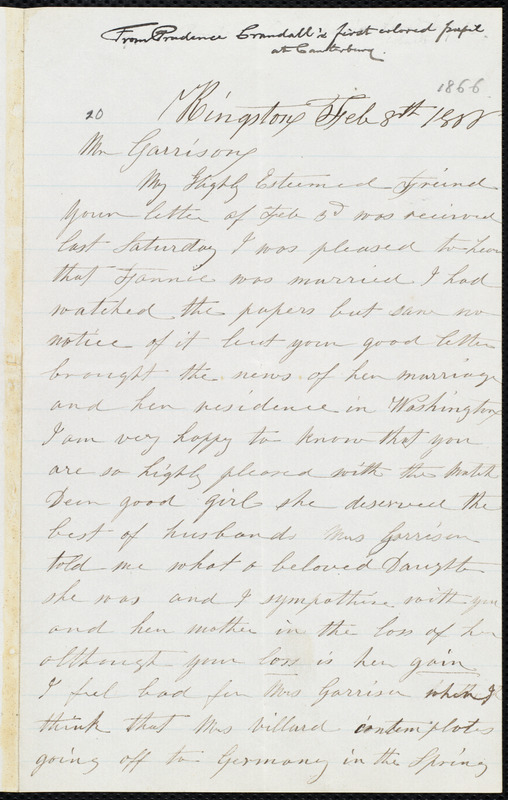 From Prudence Crandall's first colored pupil
at Canterbury.
1866
20
Kingston Feb 8th 1866
Mr Garrison
My Highly Esteemed Friend
Your letter of Feb 3d was received
last Saturday I was pleased to hear
that Fannie was married I had
watched the papers but saw no
notice of it but your good letter
brought the news of her marriage
and her residence in Washington
I am very happy to know that you
are so highly pleased with the match
Dear good girl she deserved the
best of husbands Mrs Garrison
told me what a beloved Daughter
she was and I sympathise with you
and her mother in the loss of her
although your loss is her gain
I feel bad for Mrs Garrison when I
think that Mrs Villard contemplates
going off to Germany in the Spring